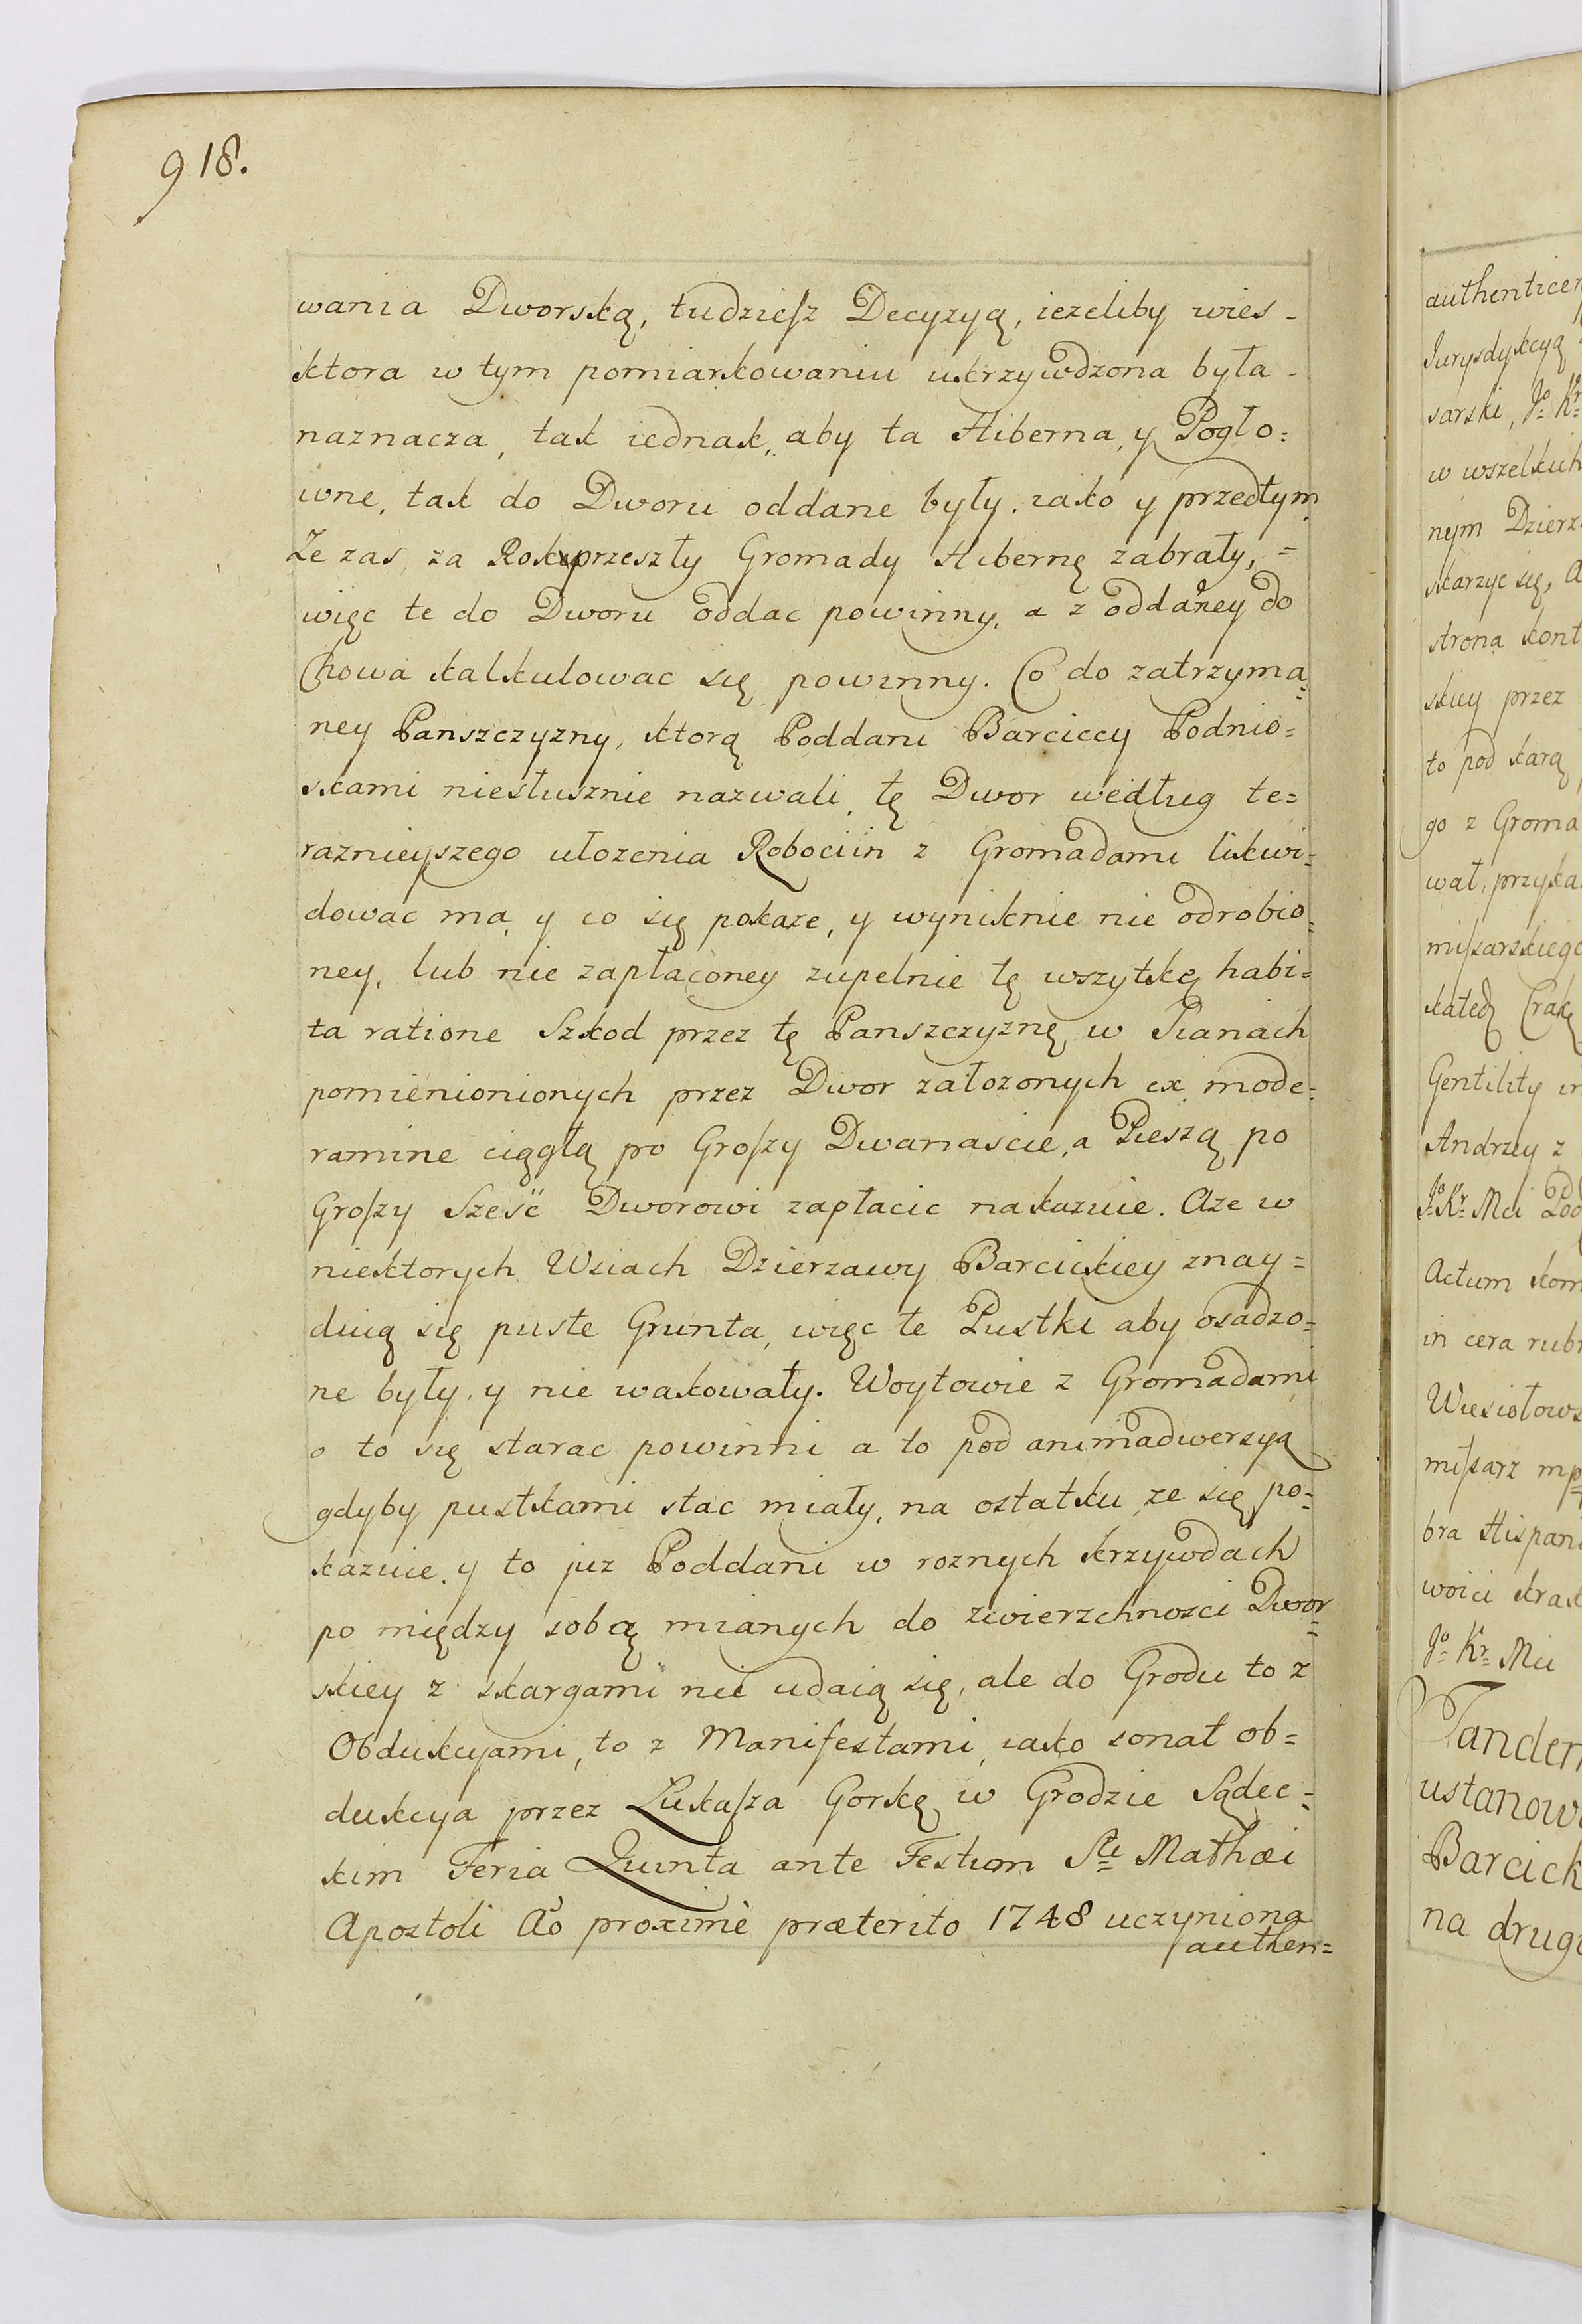 918.
wania Dworską, tudziesz Decyzyą, iezeliby wies -
ktora w tym pomiarkowaniu ukrzywdzona była -
naznacza, tak iednak, aby ta Hiberna, y Pogło=
wne, tak do Dworu oddane były, iako y przedtym
Ze zas, za Rok przeszły Gromady Hibernę zabrały, =
więc te do Dworu oddac powinny, a z oddaney do
Chowa kalkulowac się powinny. Co do zatrzyma=
ney Panszczyzny, ktorą Poddani Barciccy Podnio=
skami niesłusznie nazwali, tę Dwor według te=
raznieyszego ułozenia Robocizn z Gromadami likwi=
dowac ma, y co się pokaze, y wyniknie nie odrobio=
ney, lub nie zapłaconey zupelnie tę wszytkę habi=
ta ratione Szkod przez tę Panszczyznę w Sianach
pomienionionych przez Dwor załozonych ex mode=
ramine ciągłą po Groszy Dwanascie, a Pieszą po
Groszy Sześć Dworowi zapłacic nakazuie. Aze w
niektorych Wsiach Dzierzawy Barcickiey znay=
duią się puste Grunta, więc te Pustki aby osadzo=
ne były, y nie wakowały. Woytowie z Gromadami
o to się starac powinni a to pod animadwersyą
gdyby pustkami stac miały, na ostatku ze się po=
kazuie, y to juz Poddani w roznych krzywdach
po między sobą mianych do zwierzchnosci Dwor=
skiey z skargami nie udaią się, ale do Grodu to z
Obdukcyami, to z Manifestami, iako sonat ob=
dukcya przez Łukasza Gorskę w Grodzie Sądec=
kim Feria Quinta ante Festum Sti Mathæi
Apostoli Ao proximè præterito 1748 uczyniona
authen=
authenticen
Jurysdykcyą
sarski, Jo Kr
w wszelkich
nym Dzierz
skarzyc się, a
strona kont
skiey przez
to pod karą
go z Groma
wał, przyka
missarskiego
Gentility in
Andrzey z
Jo Kr Mci Pod
Actum kom
in cera rubr
Wiesiołows
missarz mp
bra Hispani
woici krak
Jo Kr Mci
Tandem
ustanow
Barcick
na drugi